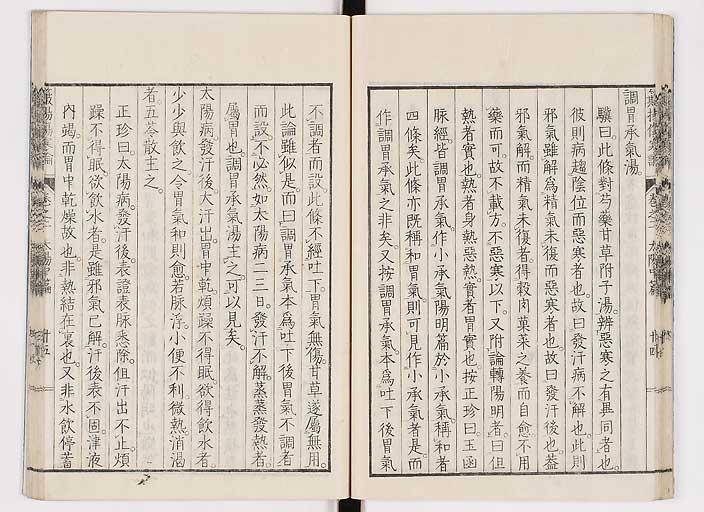 調胃承氣湯
驥曰。此條對芍藥甘草附子湯。辨惡寒之有異同者也。
彼則病趨陰位而惡寒者也。故曰發汗病不解也。此則
邪氣雖解。為精氣未復而惡寒者也。故曰發汗後也。蓋
邪氣解而精氣未復者。得穀肉菓菜之養。而自愈不用
藥而可。故不載方。不惡寒以下。又附論轉陽明者。曰但
熱者實也。熱者身熱惡熱。實者胃實也。按正珍曰。玉函
脉經皆調胃承氣。作小承氣。陽明篇於小承氣。稱和者
四條矣。此條亦既稱和胃氣。則可見作小承氣者是。而
作調胃承氣之非矣。又按調胃承氣。本為吐下後胃氣
不調者而設。此條不經吐下。胃氣無傷。甘草遂屬無用。
此論雖似是。而曰調胃承氣本為吐下後胃氣不調者
而設。不必然。如太陽病二三日。發汗不解。蒸蒸發熱者。
屬胃也。調胃承氣湯主之。可以見矣。
太陽病發汗後。大汗出。胃中乾煩躁不得眠。欲得飲水者。
少少與飲之。令胃氣和則愈。若脉浮。小便不利。微熱消渴
者。五苓散主之。
正珍曰。太陽病。發汗後。表證表脉悉除。但汗出不止。煩
躁不得眠。欲飲水者。是雖邪氣已解。汗後表不固。津液
內竭。而胃中乾燥故也。非熱結在裏也。又非水飲停蓄
太陽中篇
廿四
太陽中篇
廿五